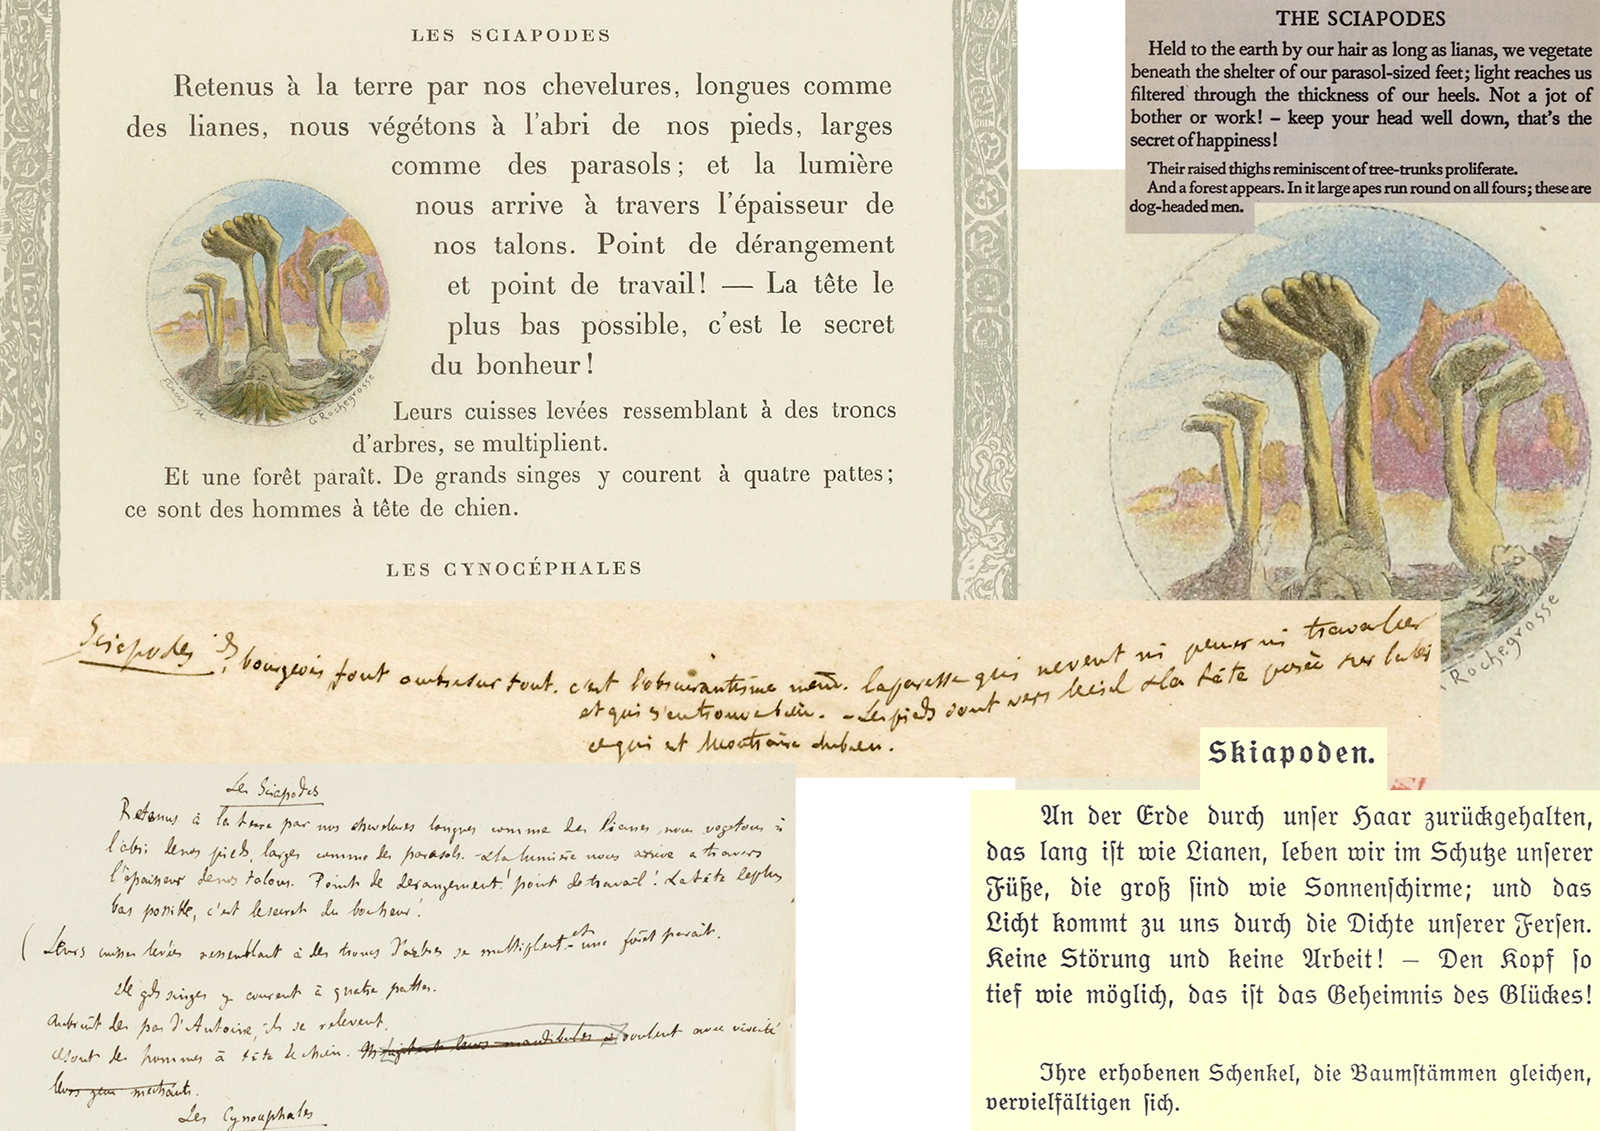 LES SCIAPODES
Retenus à la terre par nos chevelures, longues comme
des lianes, nous végétons à l'abri de nos pieds, larges
comme des parasols ; et la lumière
nous arrive à travers l'épaisseur de
nos talons. Point de dérangement
et point de travail ! — La tête le
plus bas possible, c'est le secret
du bonheur !
Leurs cuisses levées ressemblant à des troncs
d'arbres, se multiplient.
Et une forêt paraît. De grands singes y courent à quatre pattes ;
ce sont des hommes à tête de chien.
LES CYNOCÉPHALES
G Rochegrosse
THE SCIAPODES
Held to the earth by our hair as long as lianas, we vegetate
beneath the shelter of our parasol-sized feet; light reaches us
filtered through the thickness of our heels. Not a jot of
bother or work! – keep your head well down, that's the
secret of happiness!
Their raised thighs reminiscent of tree-trunks proliferate.
And a forest appears. In it large apes run round on all fours; these are
dog-headed men.
Rochegrosse
Sciapodes bourgeois font ombre sur tout. c'est l'obscurantisme même. la paresse qui ne veut ni penser ni travailler
et qui s'en trouve bien. - Les pieds sont vers le ciel & la tête posée sur
ce qui est
Les Sciapodes
Retenus à la terre par nos chevelures longues comme des lianes, nous vegetons à
l'abri de nos pieds, larges comme des parasols. - & la lumière nous arrive a travers
l'épaisseur de nos talons. Point de derangement! point de travail! La tête le plus
bas possible, c'est le secret du bonheur!
( Leurs cuisses levées ressemblant à des troncs d'arbres se multiplient - et une forêt parait.
De gds singes y courent à quatre pattes.
Au bruit des pas d'Antoine, ils se relevent.
ce sont des hommes à tête de chien. leurs mandibules & roulent avec vivacité
leurs yeux méchants.
Les Cynocephales
Skiapoden.
An der Erde durch unser Haar zurückgehalten,
das lang ist wie Lianen, leben wir im Schutze unserer
Füße, die groß sind wie Sonnenschirme; und das
Licht kommt zu uns durch die Dichte unserer Fersen.
Keine Störung und keine Arbeit! — Den Kopf so
tief wie möglich, das ist das Geheimnis des Glückes!
Ihre erhobenen Schenkel, die Baumstämmen gleichen,
vervielfältigen sich.